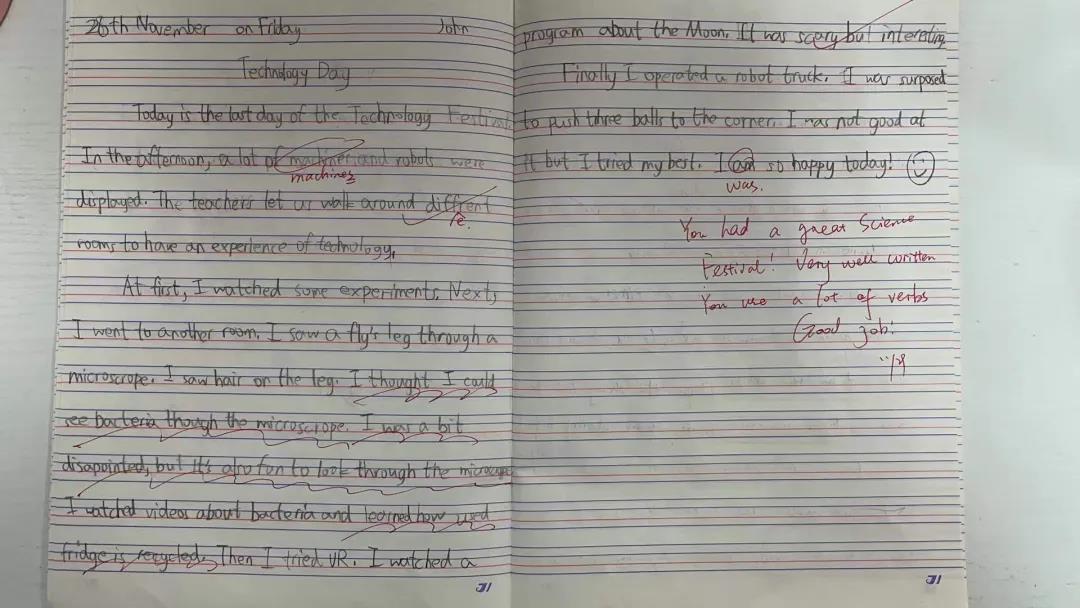 26th November on Friday John
Technology Day
Today is the last day of the Technology Festival
In the afternoon, a lot of machiner and robots were
machines
displayed. The teachers let us walk around diffrent
fe.
rooms to have an experience of technology.
At first, I watched some experiments. Next,
I went to another room. I saw a fly's leg through a
microscrope. I saw hair on the leg. I thought I could
see bacteria though the microscrope. I was a bit
disapointed, but it's also fun to look through the
I watched videos about bacteria and learned how used
fridge is recycled. Then I tried VR. I watched a
31
program about the Moon. It was scary but interesting
Finally I operated a robot truck. I was surposed
to push three balls to the corner. I was not good at
it but I tried my best. I am so happy today!
was.
You had a great Science
Festival! Very well written
You use a lot of verbs
Good job!
31